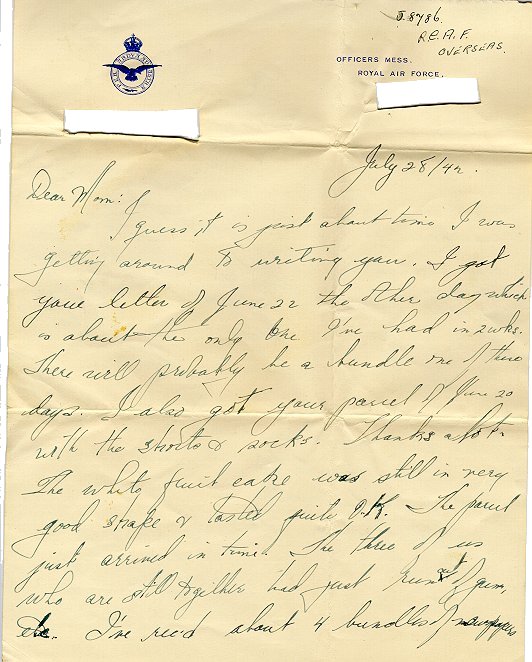 J.8786.
R.C.A.F.
OVERSEAS.
OFFICERS MESS.
ROYAL AIR FORCE.
July 28/42.
Dear Mom:
I guess it is just about time I was
getting around to writing you. I got
your letter of June 22 the other day which
is about the only one I've had in 2 wks.
There will probably be a bundle one of these
days. I also got your parcel of June 20
with the shorts & socks. Thanks a lot.
The white fruit cake was still in very
good shape & tasted quite O.K. The parcel
just arrived in time. The three of us
who are still together had just run out of gum,
etc. I've rec'd about 4 bundles of newspapers